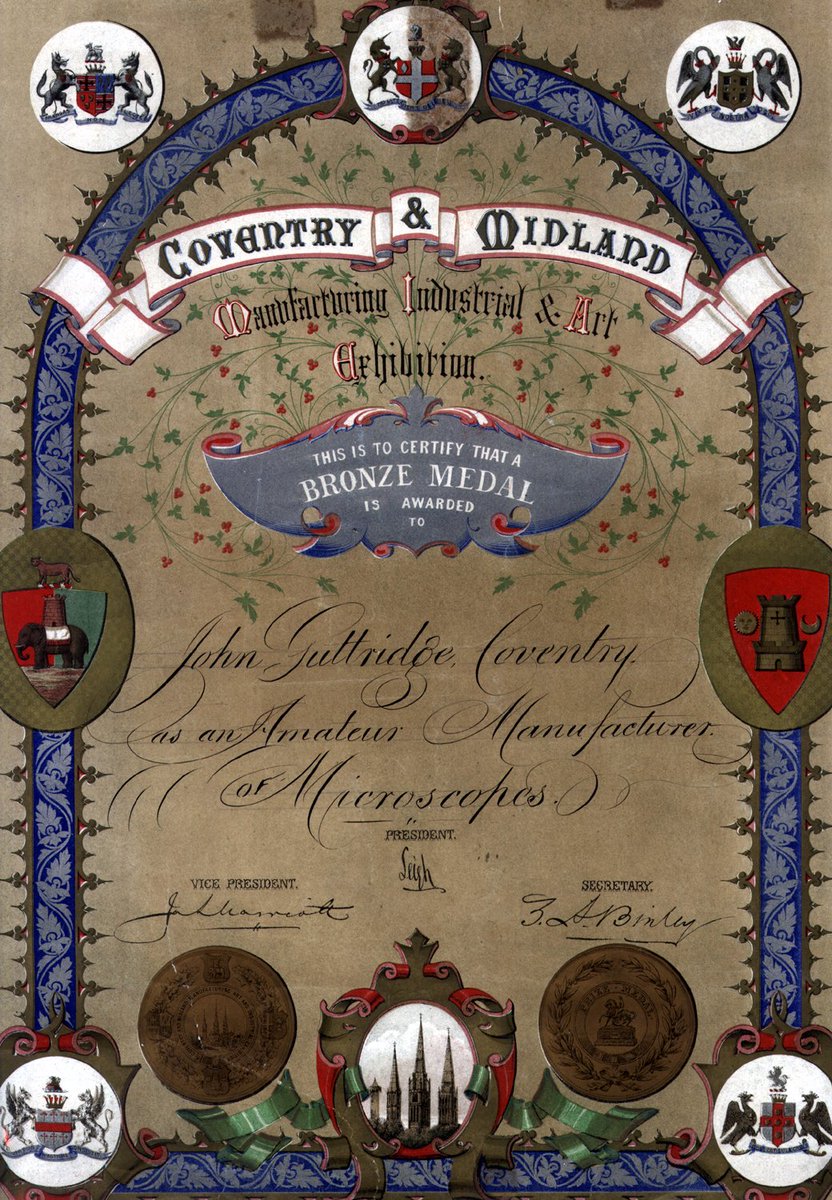 COVENTRY & MIDLAND
Manufacturing Industrial & Art
Exhibition.
THIS IS TO CERTIFY THAT A
BRONZE MEDAL
IS AWARDED
TO
John Guttridge, Coventry.
as an Amateur Manufacturer
of Microscopes.
PRESIDENT.
Leigh
VICE PRESIDENT.
SECRETARY.
Binley
PRIZE MEDAL